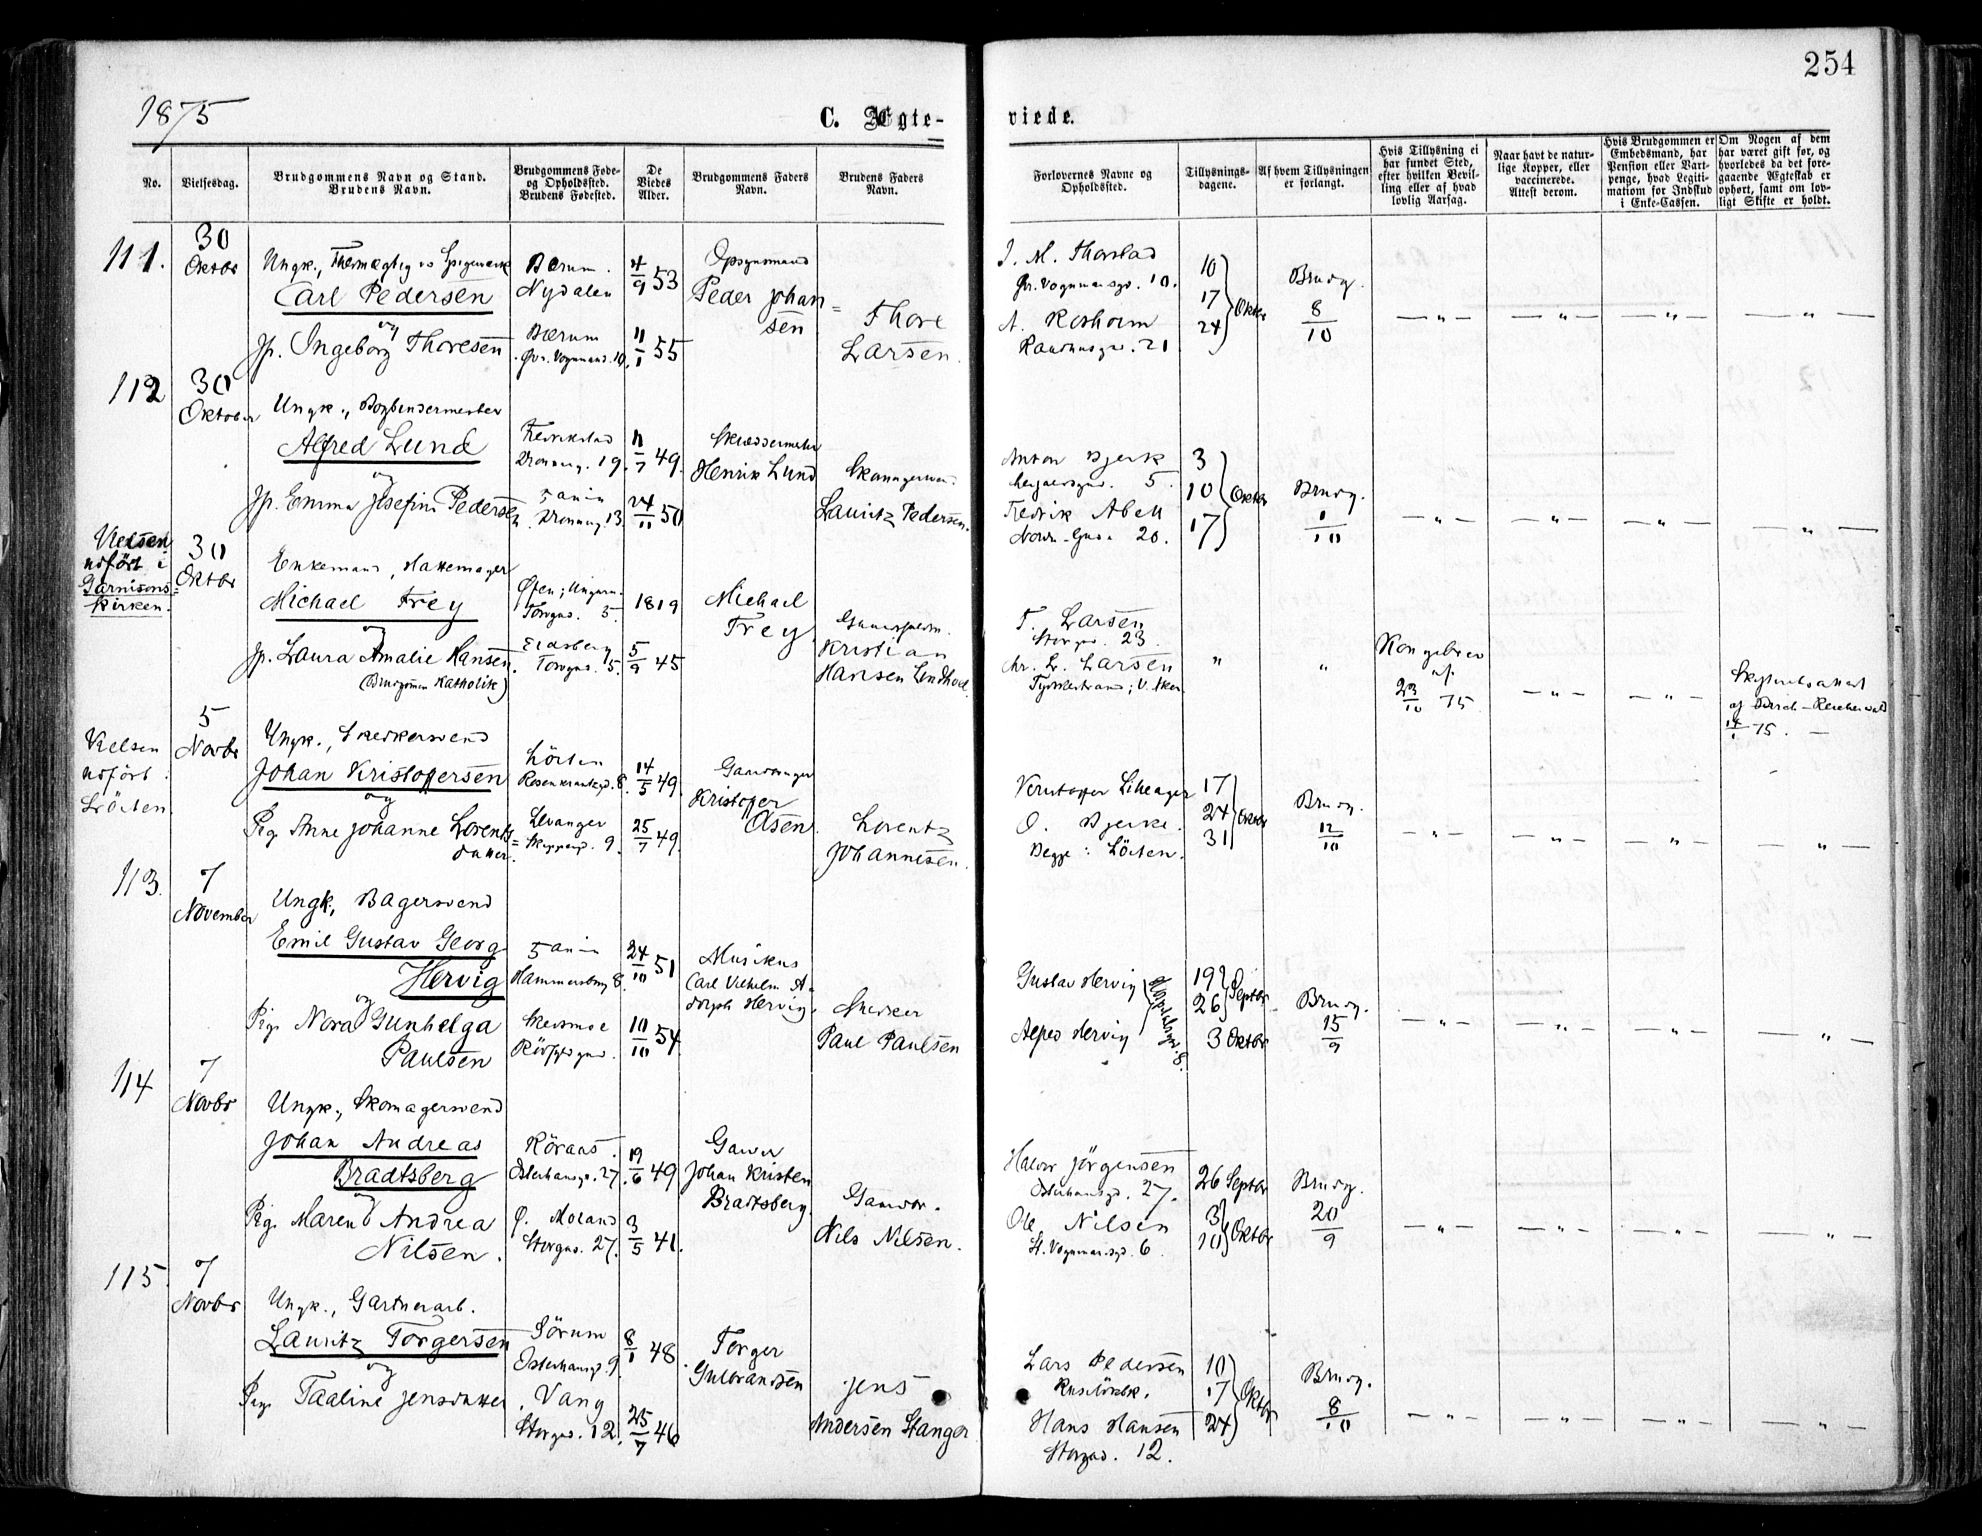 254
1875
C. Ægte-
viede.
No.
Vielsesdag.
Brudgommens Navn og Stand.
Brudens Navn.
Brudgommens Føde-
og Opholdssted.
Brudens Fødested.
De
Viedes
Alder.
Brudgommens Faders
Navn.
Brudens Faders
Navn.
Forlovernes Navne og
Opholdssted.
Tillysnings-
dagene.
Af hvem Tillysningen
er forlangt.
Hvis Tillysning ei
har fundet Sted,
efter hvilken Bevil-
ling eller af hvad
lovlig Aarsag.
Naar havt de natur-
lige Kopper, eller
vaccinerede.
Attest derom.
Hvis Brudgommen er
Embedsmand, har
Pension eller Vart-
penge, hvad Legiti-
mation for Indskud
i Enke-Cassen.
Om Nogen af dem
har været gift før, og
hvorledes da det fore-
gaaende Ægteskab er
ophørt, samt om lov-
ligt Skifte er holdt.
111.
30
Oktbr
Ungk.,
Carl Pedersen
og
Jp. Ingeborg Thoresen
Bærum.
Nydalen
Bærum
4/9 53
11/1 55
Opsynsmand
Peder Johan=
sen
Thore
Larsen.
J. M. Thorstad
10.
A. Rosholm
21
10
17
24
Oktbr
Brudg.
8/10
112
30
Oktober
Ungk., Bogbindermester
Alfred Lund
og
Jp. Emma Josefine Pedersen
Fredrikstad
19.
13.
11/7 49.
24/11 50
Skræddermester
Henrik Lund
Skomagersvend
Lauritz Pedersen.
Anton Bjerk
5.
Fredrik Abell
20.
3
10
17
Oktbr
Brudg.
1/10
Vielsen
udført i
Garnisons=
kirken.
30
Oktbr
Enkemand, Hattemager
Michael Frey
og
Jp. Laura Amalie Hansen.
(Brudgommen Katholik)
Ofen; Ungarn.
Torvgad. 5.
Eidsberg
Torvgad. 5.
1819
5/9 45
Michael
Frey
Kristian
Hansen
T. Larsen
Storgad. 23.
Chr. L. Larsen
Tydskestrand; V. Aker
Kongebrev
af
23/10 75
Skifteretsattest
75. —
Vielsen
udført.
Löiten
5
Novbr
Ungk., Snedkersvend
Johan Kristoffersen
og
Pig. Anne Johanne Lorents=
datter.
Löiten
Rosenkrantzgd. 8.
Levanger
9.
14/5 49.
25/7 49.
Gaardbruger
Kristoffer
Olsen.
Lorentz
Johannesen.
O. Bjerke.
Begge: Löiten.
17
24
31
Oktbr
Brudg.
12/10
113.
7
November
Ungk., Bagersvend
Emil Gustav Georg
Hervig
og
Pig. Nora Gunhelga
Paulsen
Hammersborg 8.
Skedsmoe
24/10 51
10/10 54
Musikus
Carl Vilhelm A=
dolph Hervig.
Snedker
Paul Paulsen
Gustav Hervig
Alfred Hervig
Hospitalsgd. 8.
19
26
Septbr
3 Oktbr
Brudg.
15/9
114
7
Novbr
Ungk., Skomagersvend
Johan Andreas
Bradtsberg
og
Pig. Maren Andrea
Nilsen.
Röraas.
Osterhausgd. 27.
Ø. Moland
Storgad. 27.
19/6 49
3/5 41.
Johan Kristen
Bradtsberg
Nils Nilsen.
Halvor Jörgensen
Osterhausgd. 27.
Ole Nilsen
St. Vognmansgd. 6.
26 Septbr
3
10
Oktbr
Brudg.
20/9
115
7
Novbr
Ungk., Gartnerarb.
Lauritz Torgersen
og
Pig. Taaline Jensdatter
Sörum
Osterhausgd. 9
Vang
Storgad. 12.
8/1 48
25/7 46
Torger
Gulbrandsen
Jens
Andersen Stanger
Lars Pedersen
Hans Hansen
Storgad. 12.
10
17
24
Oktbr
Brudg.
8/10